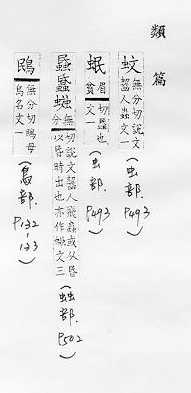 類篇
蚊 無分切說文
齧人蟲文一
(虫部. P493)
眉貧切蟲也
文一
(虫部. P493)
無分切說文齧人飛蟲或从昏
以昏時出也亦作 文三
(䖵部. P502)
無分切 母
鳥名文一
(鳥部. P132-133)